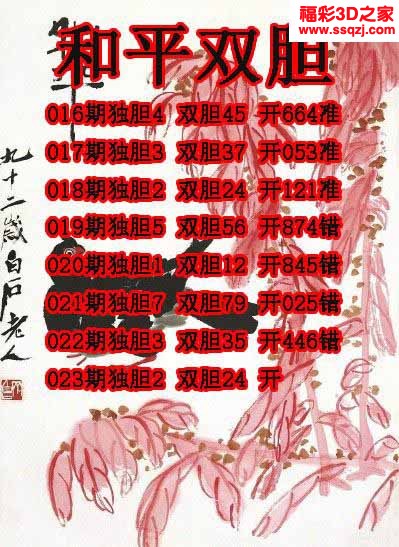 福彩3D之家
www.ssqzj.com
和平双胆
016期独胆4 双胆45 开664准
017期独胆3 双胆37 开053准
018期独胆2 双胆24 开121准
019期独胆5 双胆56 开874错
020期独胆1 双胆12 开845错
021期独胆7 双胆79 开025错
022期独胆3 双胆35 开446错
023期独胆2 双胆24 开
九十二岁白石老人